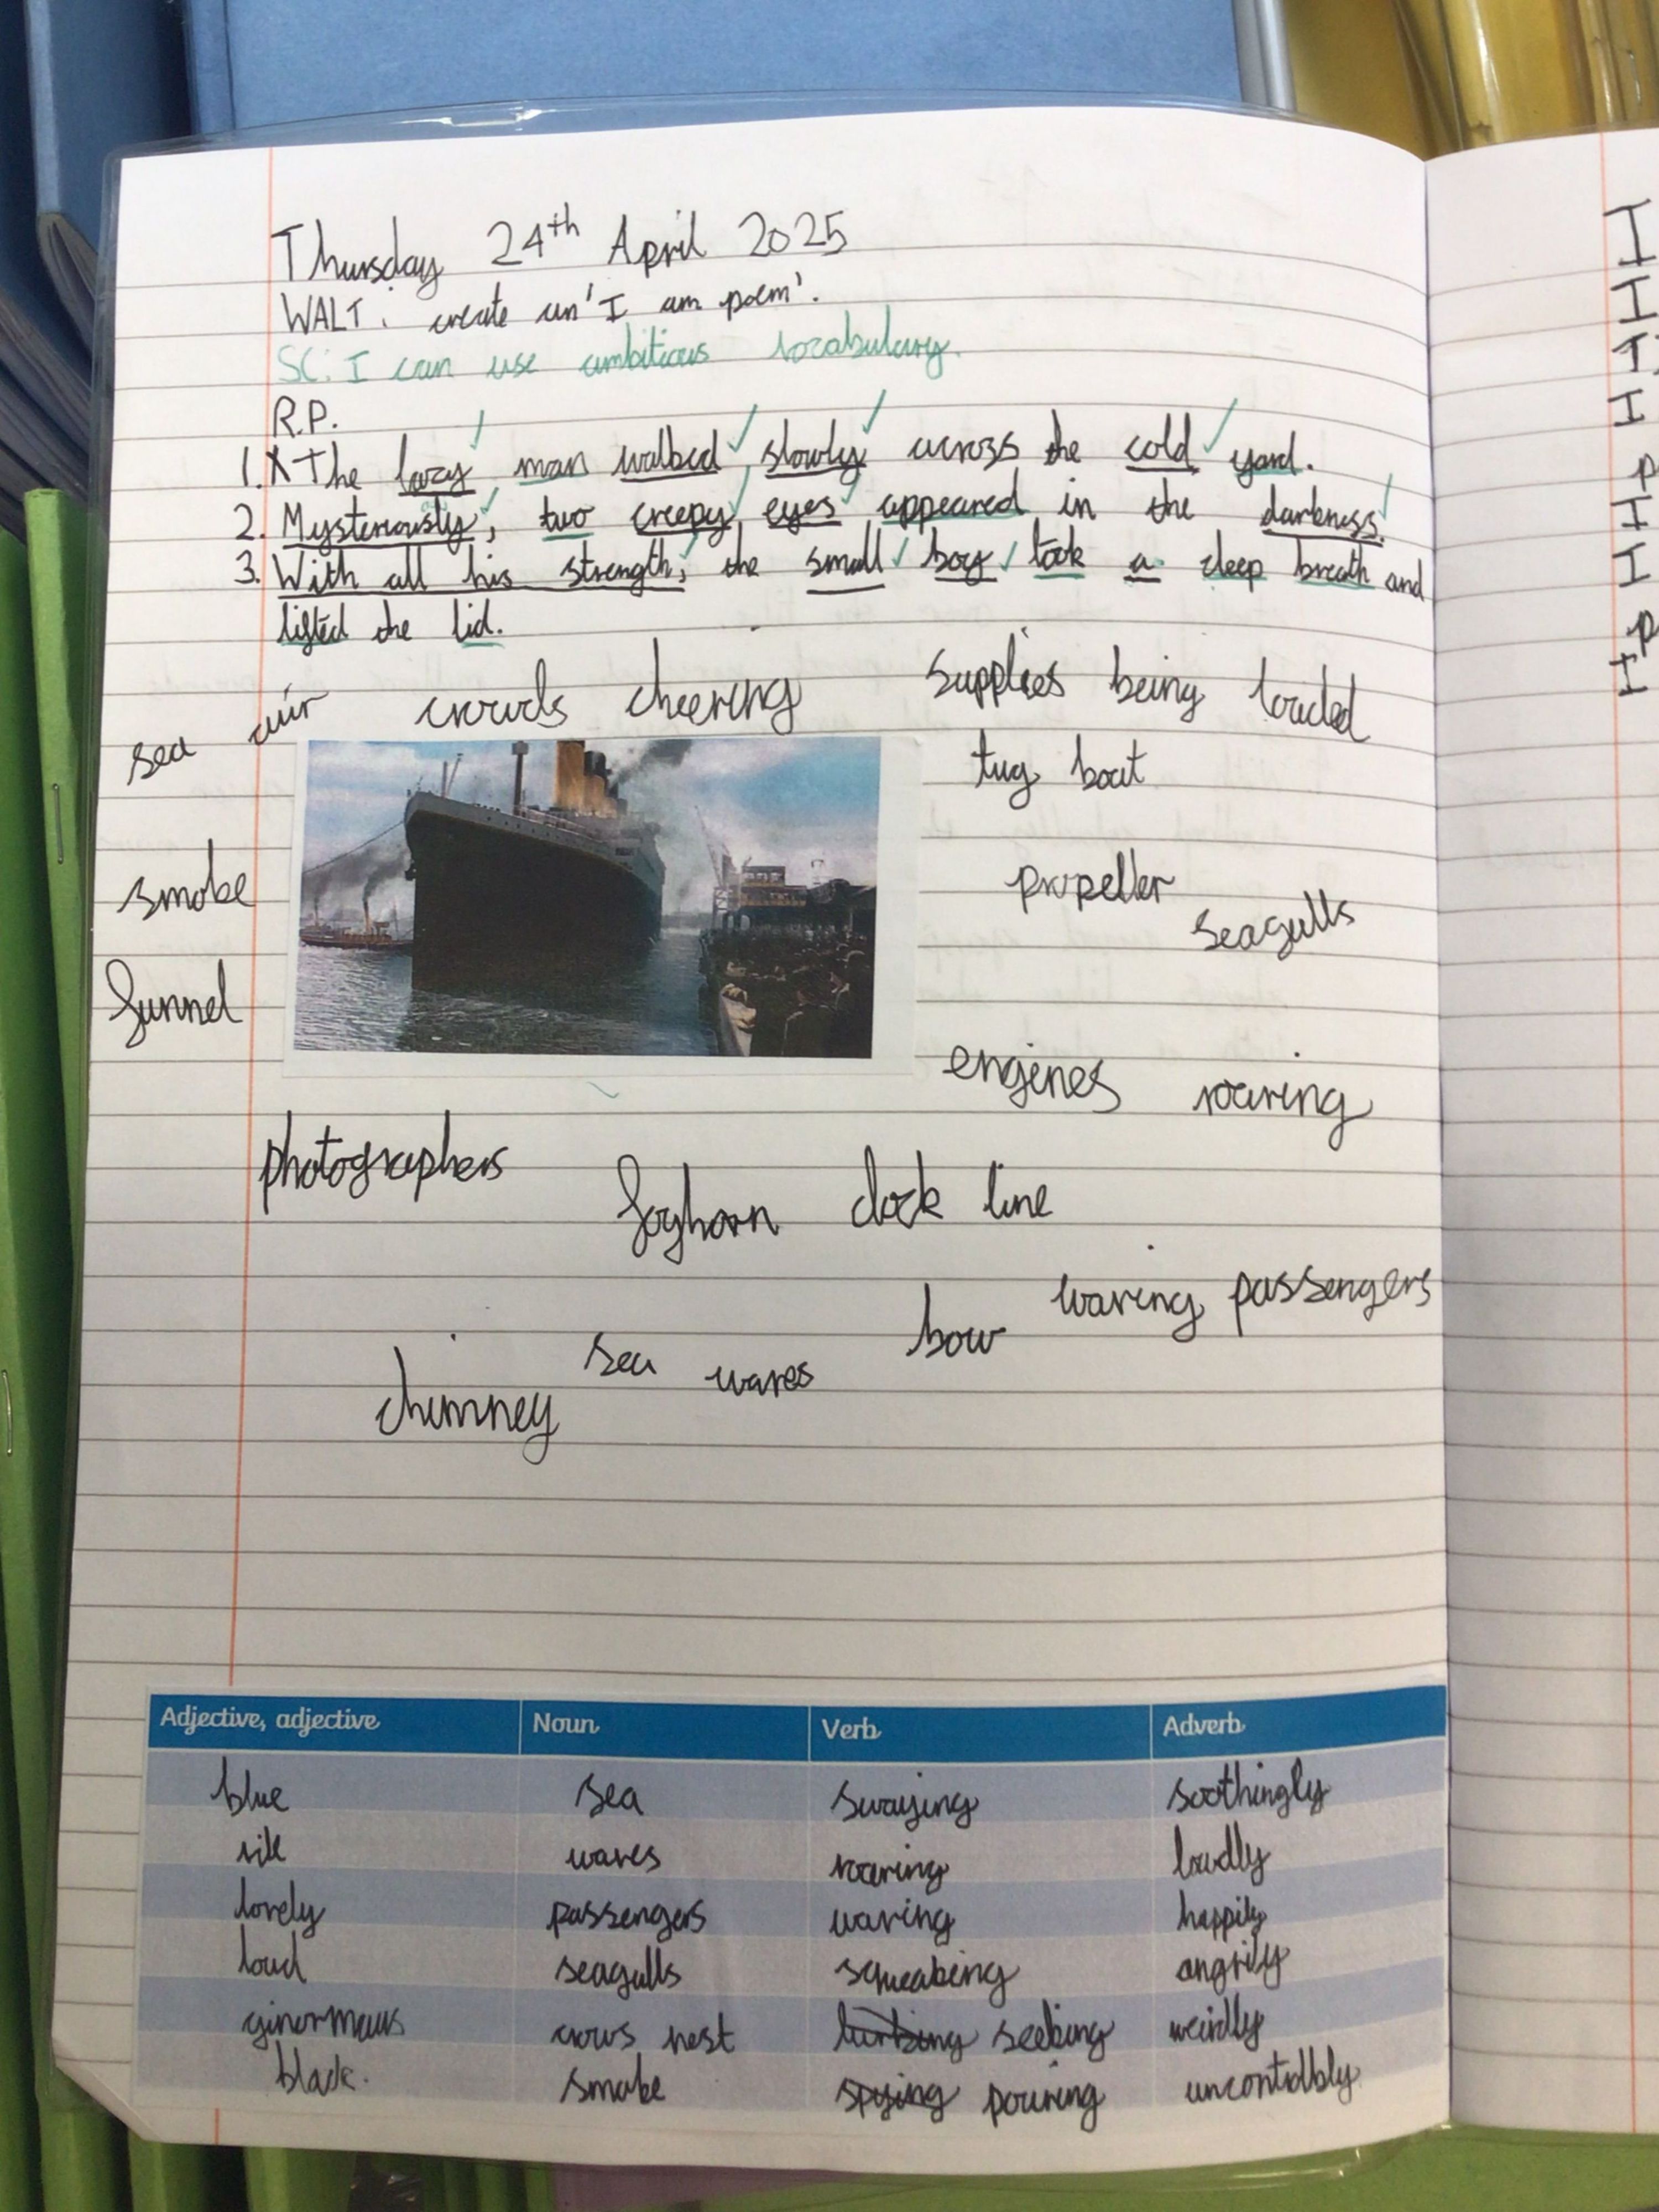 Thursday 24th April 2025
WALT: create an 'I am poem'.
SC: I can use ambitious vocabulary.
R.P.
1. X The lazy man walked slowly across the cold yard.
2. Mysteriously, two creepy eyes appeared in the darkness.
3. With all his strength, the small boy took a deep breath and
lifted the lid.
sea air crowds cheering supplies being loaded
tug boat
smoke propeller
seagulls
funnel
engines roaring
photographers
foghorn dock line
waving passengers
bow
sea waves
chimney
Adjective, adjective Noun Verb Adverb
blue sea swaying soothingly
waves roaring loudly
lovely passengers waving happily
loud seagulls squeaking angrily
ginormous crows nest lurking seeking weirdly
black. smoke spying pouring